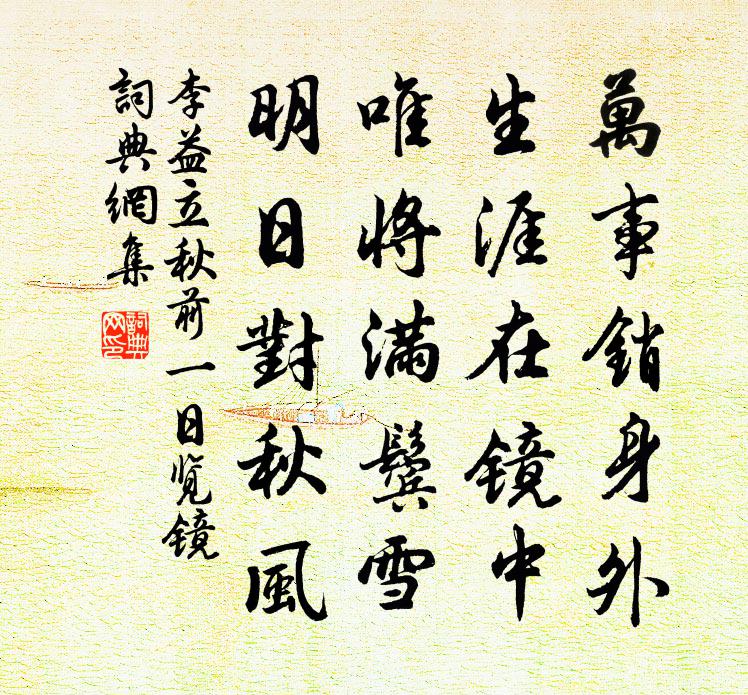 萬事銷身外
生涯在镜中
唯將滿鬢雪
明日對秋風
李益立秋前一日览镜
詞典網集
詞典
网印